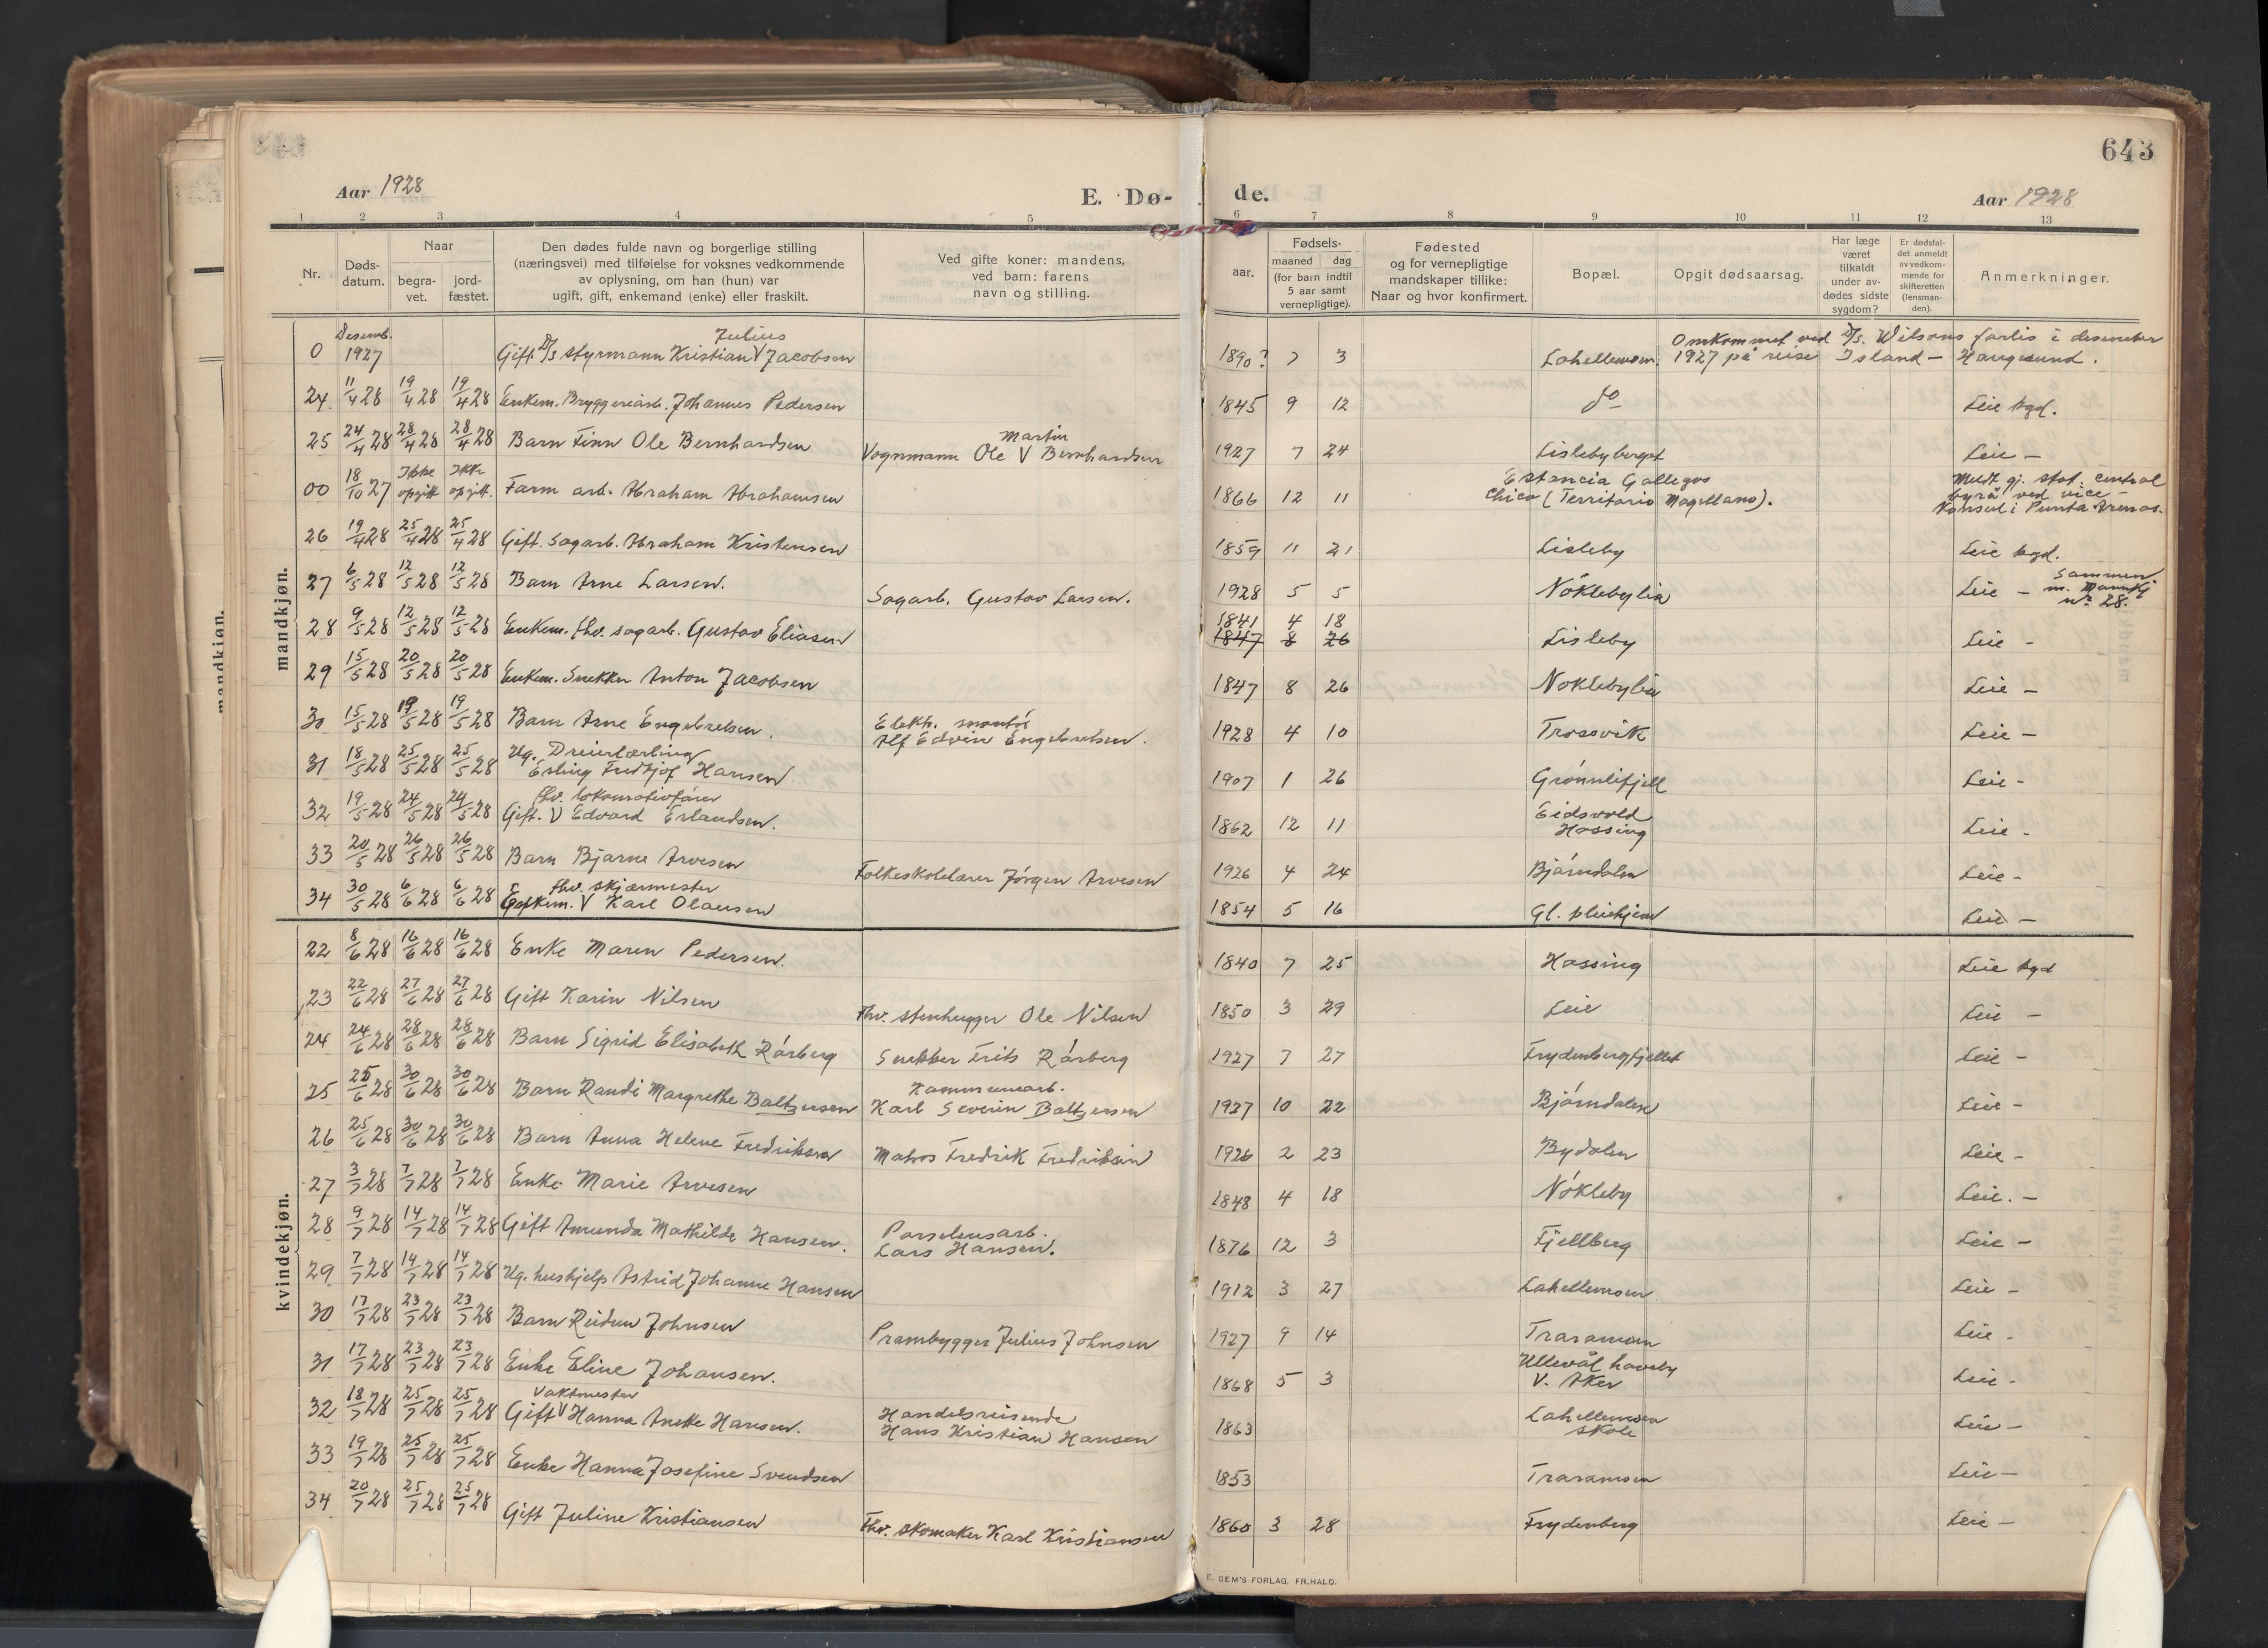 643
Aar 1928
E. Dø-
de.
Aar 1928
1 2 3 4 5 6 7 8 9 10 11 12 13
Nr.
Døds-
datum.
Naar
begra-
vet.
jord-
fæstet.
Den dødes fulde navn og borgerlige stilling
(næringsvei) med tilføielse for voksnes vedkommende
av oplysning, om han (hun) var
ugift, gift, enkemand (enke) eller fraskilt.
Ved gifte koner: mandens,
ved barn: farens
navn og stilling.
Fødsels-
aar.
maaned dag
(for barn indtil
5 aar samt
vernepligtige).
Fødested
og for vernepligtige
mandskaper tillike:
Naar og hvor konfirmert.
Bopæl.
Opgit dødsaarsag.
Har læge
været
tilkaldt
under av-
dødes sidste
sygdom?
Er dødsfal-
det anmeldt
av vedkom-
mende for
skifteretten
(lensman-
den).
Anmerkninger.
mandkjøn.
0 Desemb. 1927 Gift D/S styrmann Kristian V Julius Jacobsen 1890? 7 3 Lahellemoen. Omkommet ved D/S. Wilsons forlis i desember
1927 på reise Island - Haugesund.
24 11/4 28 19/4 28 19/4 28 Enkem. Bryggeriarb. Johannes Pedersen 1845 9 12 do Leie kgd.
25 24/4 28 28/4 28 28/4 28 Barn Finn Ole Bernhardsen Vognmann Ole V Martin Bernhardsen 1927 7 24 Lislebyberget Leie -
00 18/10 27 Ikke opgitt Ikke opgitt. Farm arb. Abraham Abrahamsen 1866 12 11 Estancia Gallegos
Chico (Territorio Magellano). Meldt gj. stat. central
byrå ved vice-
konsul i Punta Arenas.
26 19/4 28 25/4 28 25/4 28 Gift. Sagarb. Abraham Kristensen 1859 11 21 Lisleby Leie kgd.
27 6/5 28 12/5 28 12/5 28 Barn Arne Larsen. Sagarb. Gustav Larsen. 1928 5 5 Nøklebylia Leie - sammen
m. Mannkj
nr. 28.
28 9/5 28 12/5 28 12/5 28 Enkem. fhv. sagarb. Gustav Eliasen 1841 4 18
1847 8 26 Lisleby Leie -
29 15/5 28 20/5 28 20/5 28 Enkem. Snekker Anton Jacobsen 1847 8 26 Nøklebylia Leie -
30 15/5 28 19/5 28 19/5 28 Barn Arne Engebretsen. Elektr. montør
Alf Edvin Engebretsen. 1928 4 10 Trosvik Leie -
31 18/5 28 25/5 28 25/5 28 Ug. Dreierlærling
Erling Fredtjof Hansen. 1907 1 26 Grønnlifjell Leie -
32 19/5 28 24/5 28 24/5 28 fhv. lokomotivfører
Gift. V Edvard Erlandsen. 1862 12 11 Eidsvold
Hassing Leie -
33 20/5 28 26/5 28 26/5 28 Barn Bjarne Arvesen Folkeskolelærer Jørgen Arvesen 1926 4 24 Bjørndalen Leie -
34 30/5 28 6/6 28 6/6 28 fhv. skjærmester
Enkem. V Karl Olausen 1854 5 16 Gl. pleiehjem Leie -
kvindekjøn.
22 8/6 28 16/6 28 16/6 28 Enke Maren Pedersen. 1840 7 25 Hassing Leie kgd
23 22/6 28 27/6 28 27/6 28 Gift Karin Nilsen Fhv. stenhugger Ole Nilsen 1850 3 29 Leie Leie -
24 24/6 28 28/6 28 28/6 28 Barn Sigrid Elisabeth Rørberg Snekker Frits Rørberg 1927 7 27 Frydenbergfjellet Leie -
25 25/6 28 30/6 28 30/6 28 Barn Randi Margrethe Baltzersen Kommunearb.
Karl Severin Baltzersen 1927 10 22 Bjørndalen Leie -
26 25/6 28 30/6 28 30/6 28 Barn Anna Helene Fredriksen Matros Fredrik Fredriksen 1926 2 23 Bydalen Leie -
27 3/7 28 7/7 28 7/7 28 Enke Marie Arvesen 1848 4 18 Nøkleby Leie. -
28 9/7 28 14/7 28 14/7 28 Gift Amunda Mathilde Hansen. Porselensarb.
Lars Hansen. 1876 12 3 Fjellberg Leie -
29 7/7 28 14/7 28 14/7 28 Ug. hushjelp Astrid Johanne Hansen 1912 3 27 Lahellemoen Leie -
30 17/7 28 23/7 28 23/7 28 Barn Reidun Johnsen Prambygger Julius Johnsen 1927 9 14 Traramoen Leie -
31 17/7 28 23/7 28 23/7 28 Enke Eline Johansen. 1868 5 3 Ullevål haveby
V. Aker Leie -
32 18/7 28 25/7 28 25/7 28 Vaktmester
Gift V Hanna Anette Hansen. Handelsreisende
Hans Kristian Hansen 1863 Lahellemoen
skole Leie -
33 19/7 28 25/7 28 25/7 28 Enke Hanna Josefine Svendsen 1853 Traramoen Leie -
34 20/7 28 25/7 28 25/7 28 Gift Juline Kristiansen Fhv. skomaker Karl Kristiansen 1860 3 28 Frydenberg Leie -
E. SEM'S FORLAG, FR.HALD.
mandkjøn.